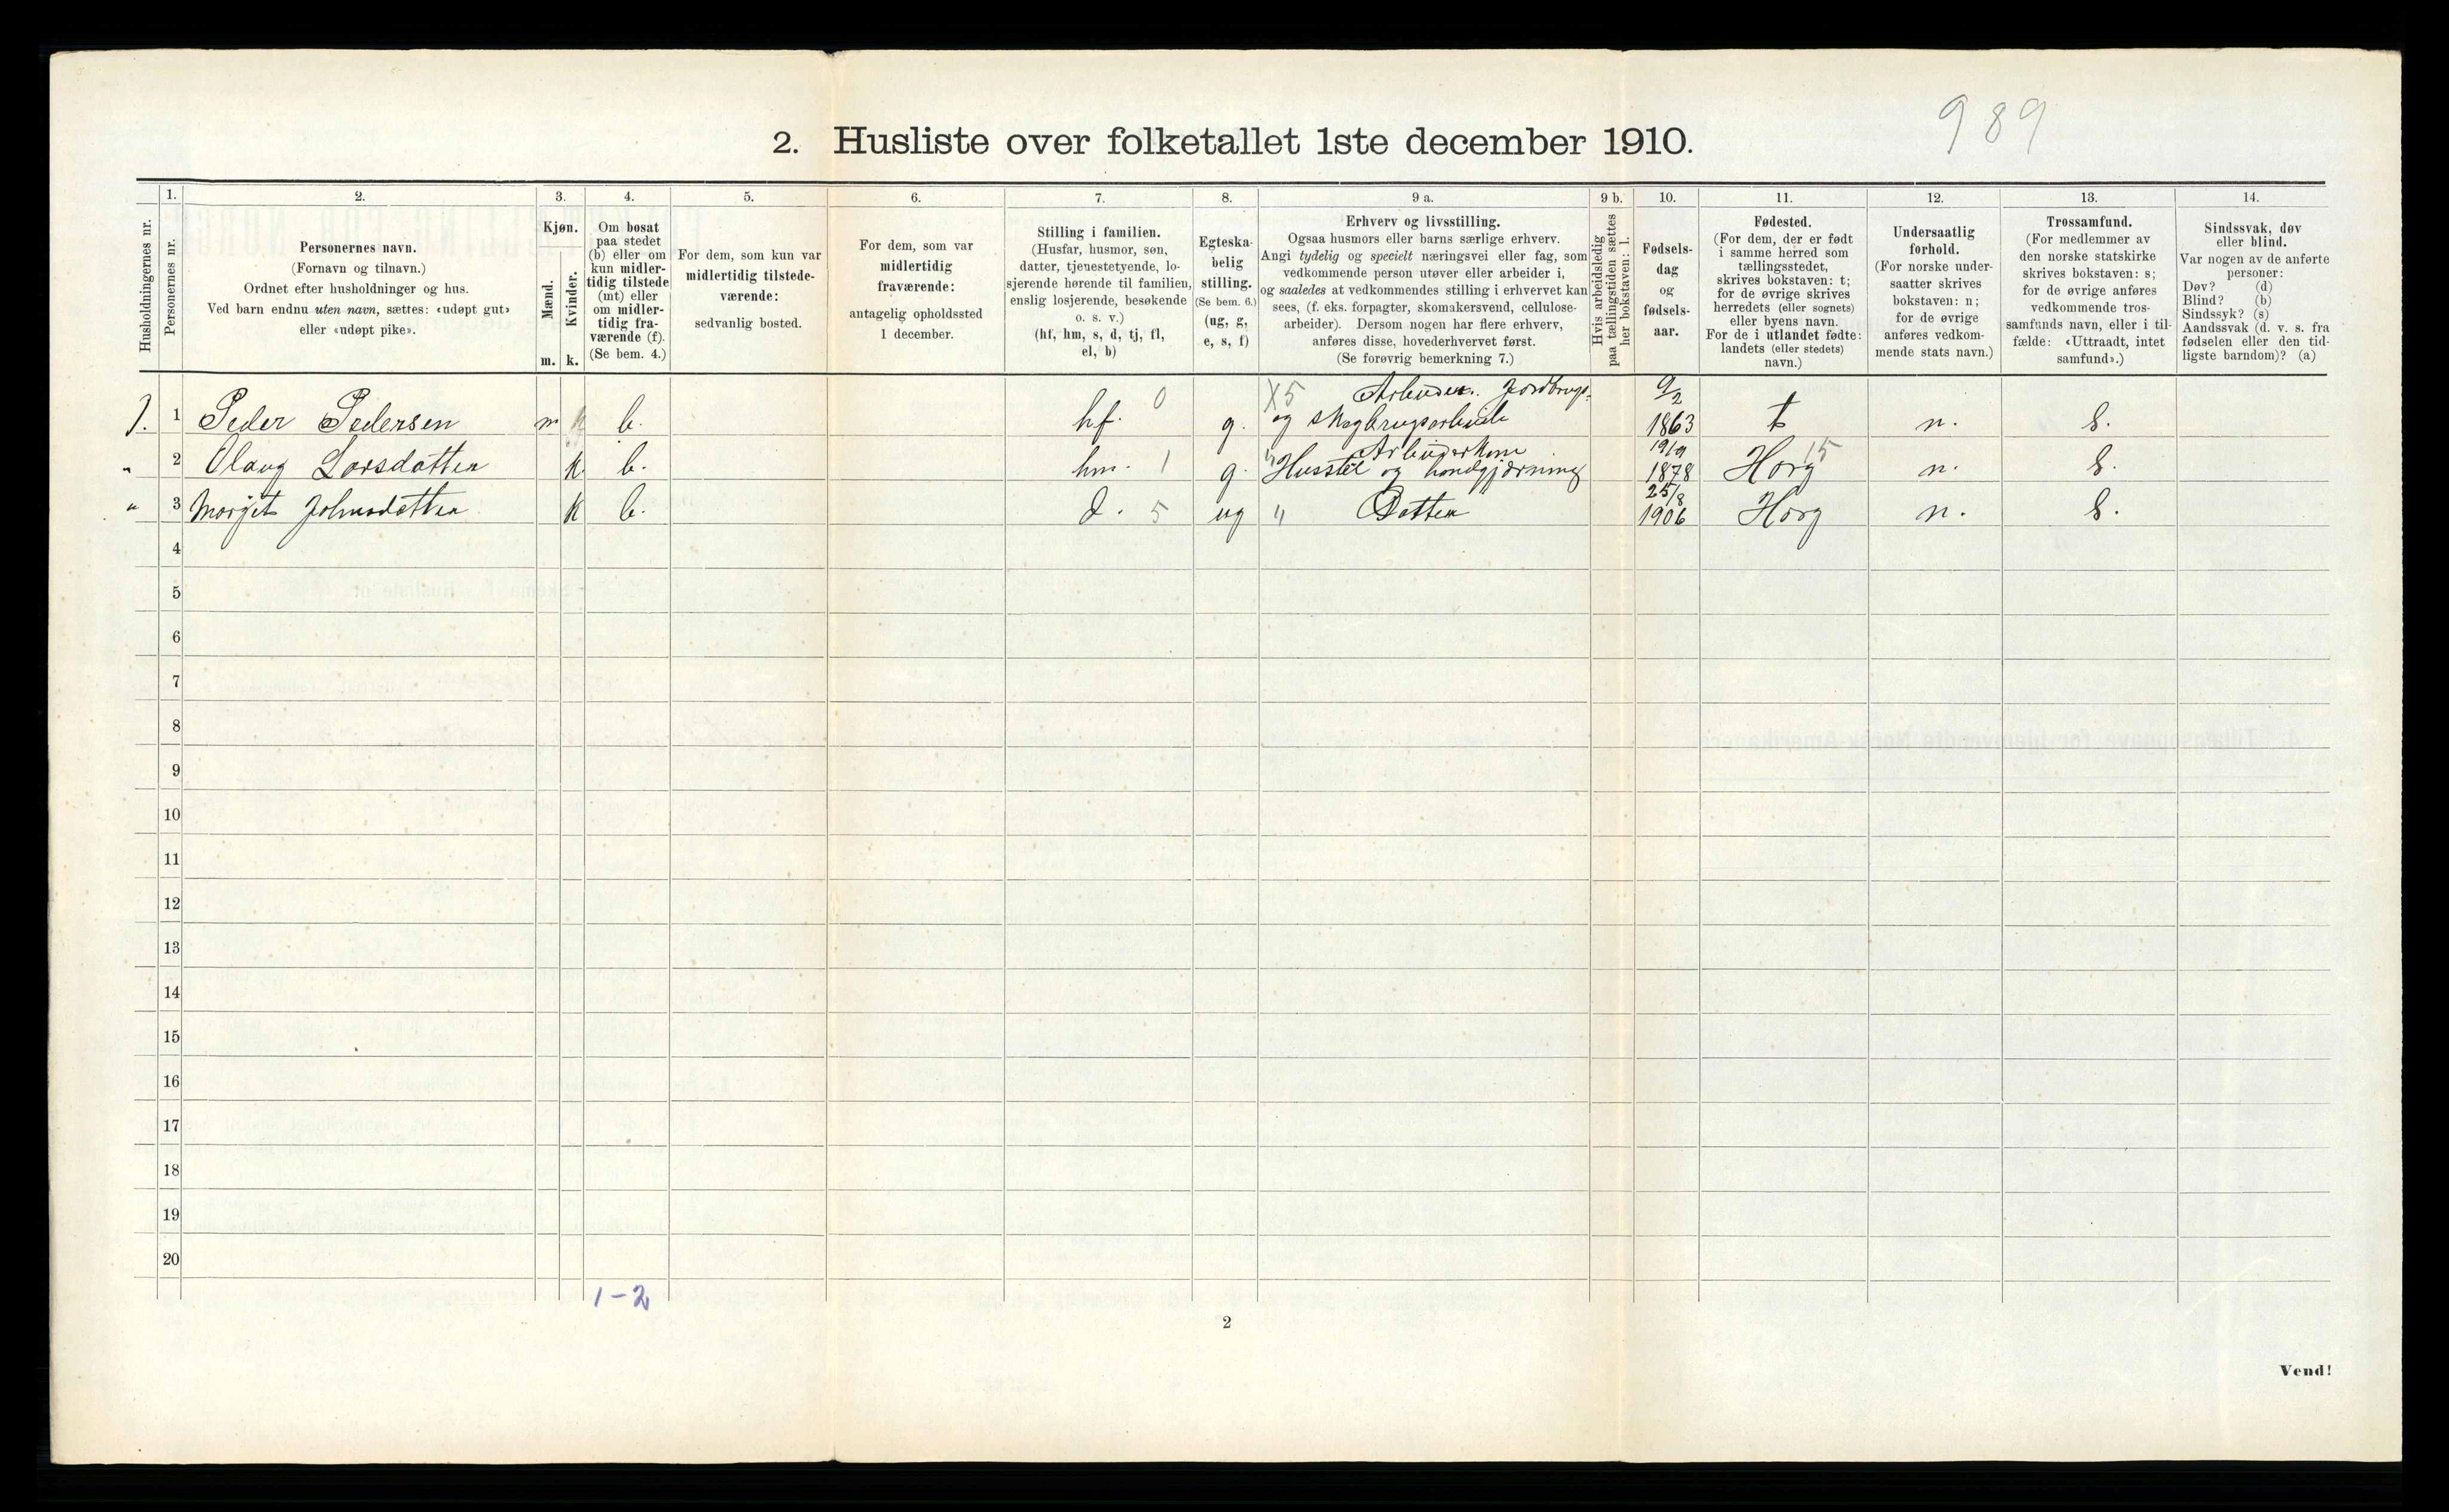 989
2. Husliste over folketallet 1ste december 1910.
Husholdningernes nr.
1.
Personernes nr.
2.
Personernes navn.
(Fornavn og tilnavn.)
Ordnet efter husholdninger og hus.
Ved barn endnu uten navn, sættes: «udøpt gut»
eller «udøpt pike».
3.
Kjøn.
Mænd.
Kvinder.
m. k.
4.
Om bosat
paa stedet
(b) eller om
kun midler-
tidig tilstede
(mt) eller
om midler-
tidig fra-
værende (f).
(Se bem. 4.)
5.
For dem, som kun var
midlertidig tilstede-
værende:
sedvanlig bosted.
6.
For dem, som var
midlertidig
fraværende:
antagelig opholdssted
1 december.
7.
Stilling i familien.
(Husfar, husmor, søn,
datter, tjenestetyende, lo-
sjerende hørende til familien,
enslig losjerende, besøkende
o. s. v.)
(hf, hm, s, d, tj, fl,
el, b)
8.
Egteska-
belig
stilling.
(Se bem. 6.)
(ug, g,
e, s, f)
9 a.
Erhverv og livsstilling.
Ogsaa husmors eller barns særlige erhverv.
Angi tydelig og specielt næringsvei eller fag, som
vedkommende person utøver eller arbeider i,
og saaledes at vedkommendes stilling i erhvervet kan
sees, (f. eks. forpagter, skomakersvend, cellulose-
arbeider). Dersom nogen har flere erhverv,
anføres disse, hovederhvervet først.
(Se forøvrig bemerkning 7.)
9 b.
Hvis arbeidsledig
paa tællingstiden sættes
her bokstaven: l.
10.
Fødsels-
dag
og
fødsels-
aar.
11.
Fødested.
(For dem, der er født
i samme herred som
tællingsstedet,
skrives bokstaven: t;
for de øvrige skrives
herredets (eller sognets)
eller byens navn.
For de i utlandet fødte:
landets (eller stedets)
navn.)
12.
Undersaatlig
forhold.
(For norske under-
saatter skrives
bokstaven: n;
for de øvrige
anføres vedkom-
mende stats navn.)
13.
Trossamfund.
(For medlemmer av
den norske statskirke
skrives bokstaven: s;
for de øvrige anføres
vedkommende tros-
samfunds navn, eller i til-
fælde: «Uttraadt, intet
samfund».)
14.
Sindssvak, døv
eller blind.
Var nogen av de anførte
personer:
Døv? (d)
Blind? (b)
Sindssyk? (s)
Aandssvak (d. v. s. fra
fødselen eller den tid-
ligste barndom)? (a)
X5 Arbeider. Jordbrugs-
1. 1 Peder Pedersen m b. hf. 0 g. og skogbrugsarbeide 9/2 1863 t n. S.
Arbeiderkone
" 2 Olaug Larsdatter k b. hm. 1 g. Husstel og haandgjærning 19/9 1878 Horg 15 n. S.
" 3 Marjit Johnsdatter k b. d. 5 ug " Datter 25/8 1906 Horg n. S.
4
5
6
7
8
9
10
11
12
13
14
15
16
17
18
19
20
1-2
2
Vend!